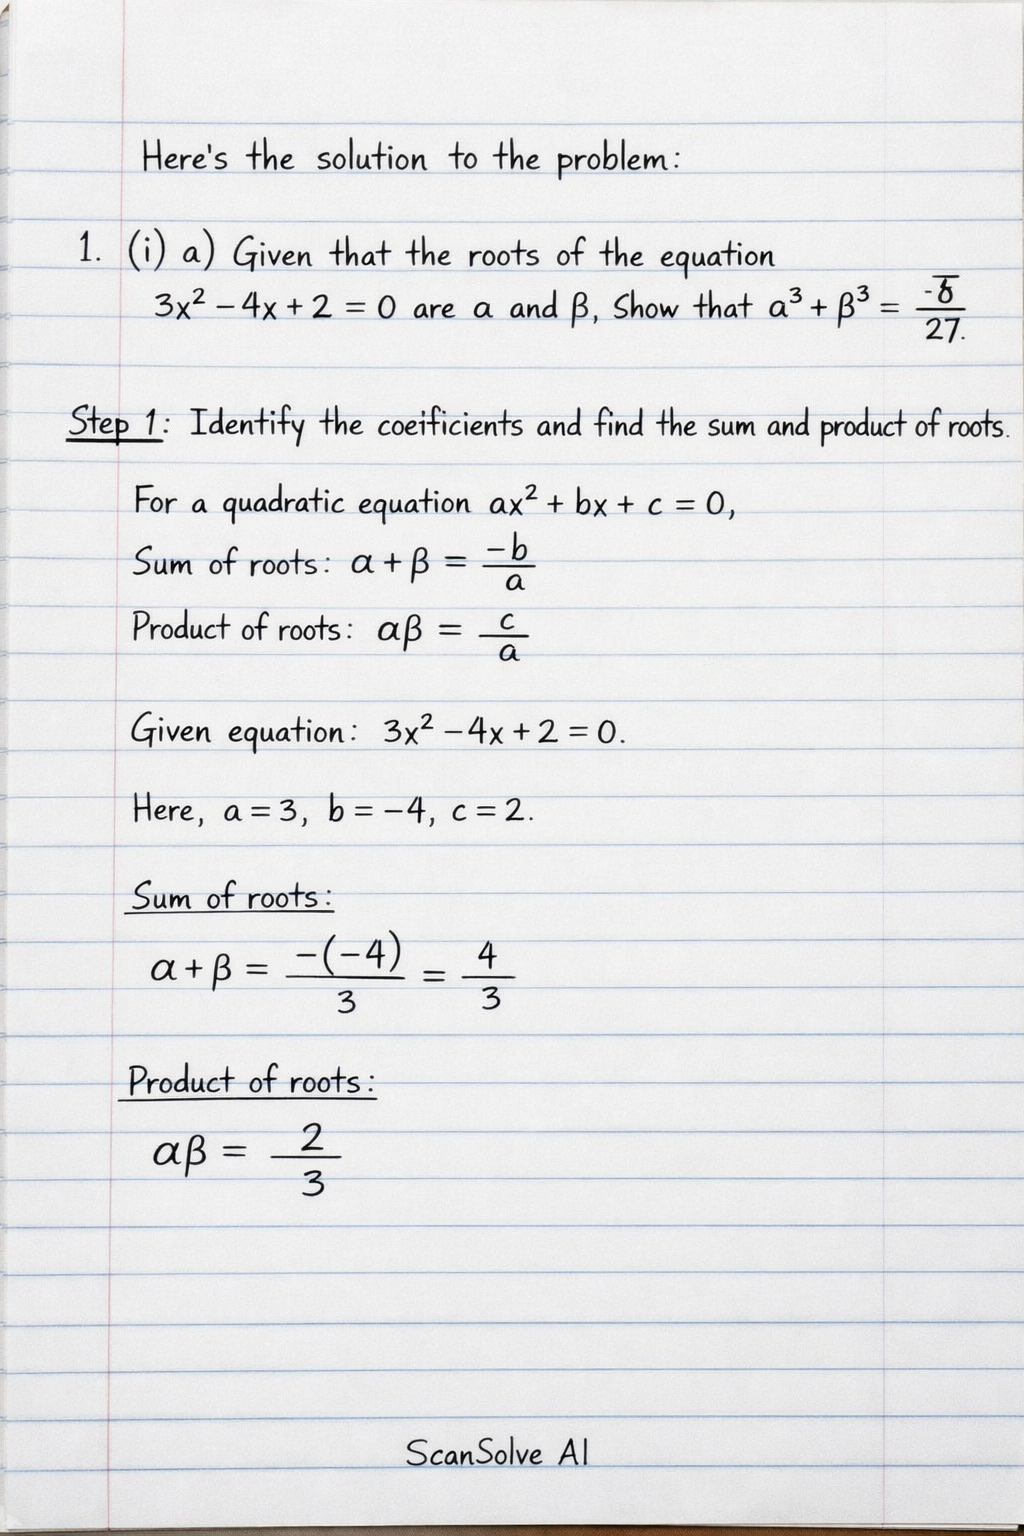 Here's the solution to the problem:
1. (i) a) Given that the roots of the equation
3x² - 4x + 2 = 0 are α and β, Show that α³ + β³ = -8/27.
Step 1: Identify the coeificients and find the sum and product of roots.
For a quadratic equation ax² + bx + c = 0,
Sum of roots: α + β = -b/a
Product of roots: αβ = c/a
Given equation: 3x² - 4x + 2 = 0.
Here, a = 3, b = -4, c = 2.
Sum of roots:
α + β = -(-4)/3 = 4/3
Product of roots:
αβ = 2/3
ScanSolve AI